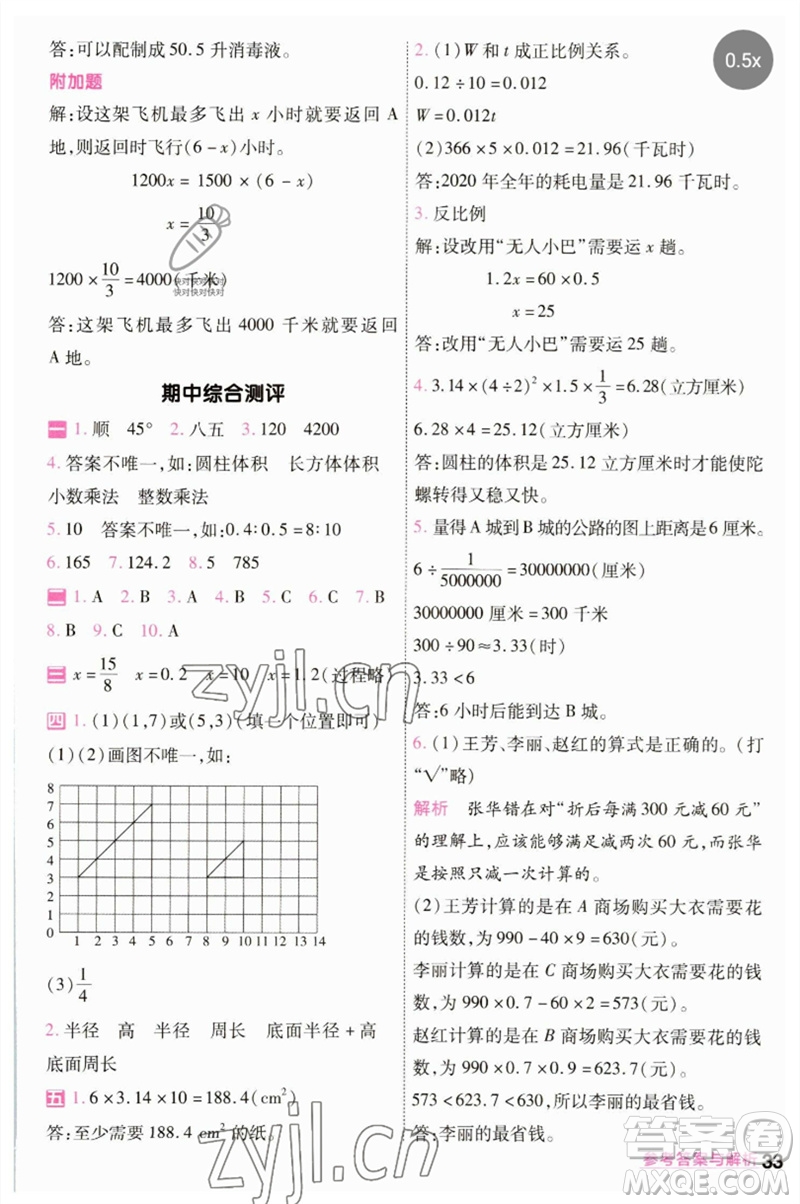 答:可以配制成 50.5 升消毒液。
附加题
解:设这架飞机最多飞出 x 小时就要返回 A
地,则返回时飞行(6-x)小时。
1200x = 1500 × (6-x)
x = 10/3
1200 × 10/3 = 4000(千米)
快对快对快对
快对快对快对
答:这架飞机最多飞出 4000 千米就要返回
A 地。
期中综合测评
一 1. 顺 45° 2. 八五 3. 120 4200
4. 答案不唯一,如:圆柱体积 长方体体积
小数乘法 整数乘法
5. 10 答案不唯一,如:0.4:0.5=8:10
6. 165 7. 124.2 8. 5 785
二 1. A 2. B 3. B 4. B 5. C 6. C 7. B
8. B 9. C 10. A
三 x=15/8 x=0.2 x=10 x=1.2(过程略)
四 1. (1)(1,7)或(5,3)(填一个位置即可)
(1)(2)画图不唯一,如:
8
7
6
5
4
3
2
1
0
1 2 3 4 5 6 7 8 9 10 11 12 13 14
(3) 1/4
2. 半径 高 半径 周长 底面半径+高
底面周长
五 1. 6×3.14×10=188.4(cm²)
答:至少需要 188.4 cm²的纸。
2. (1) W 和 t 成正比例关系。
0.12÷10=0.012
W=0.012t
(2)366×5×0.012=21.96(千瓦时)
答:2020 年全年的耗电量是 21.96 千瓦时。
3. 反比例
解:设改用“无人小巴”需要运 x 趟。
1.2x=60×0.5
x=25
答:改用“无人小巴”要运 25 趟。
4. 3.14×(4÷2)²×1.5×1/3=6.28(立方厘米)
6.28×4=25.12(立方厘米)
答:圆柱的体积是 25.12 立方厘米时才能使陀
螺转得又稳又快。
5. 量得 A 城到 B 城的公路的图上距离是 6 厘米。
6÷1/5000000=30000000(厘米)
30000000 厘米=300 千米
300÷90≈3.33(时)
3.33<6
答:6 小时后能到达 B 城。
6. (1)王芳、李丽、赵红的算式是正确的。(打
“√”略)
解析 张华错在对“折后每满 300 元减 60 元”
的理解上,应该能够满足减两次 60 元,而张华
是按照只减一次计算的。
(2)王芳计算的是在 A 商场购买大衣需要花
的钱数,为 990-40×9=630(元)。
李丽计算的是在 C 商场购买大衣需要花的钱
数,为 990×0.7-60×2=573(元)。
赵红计算的是在 B 商场购买大衣需要花的钱
数,为 990×0.7×0.9=623.7(元)。
573<623.7<630,所以李丽的最省钱。
答:李丽的最省钱。
参考答案与解析 33
0.5x
zyjl.cn
zyjl.cn
答案圈
MXQE.COM